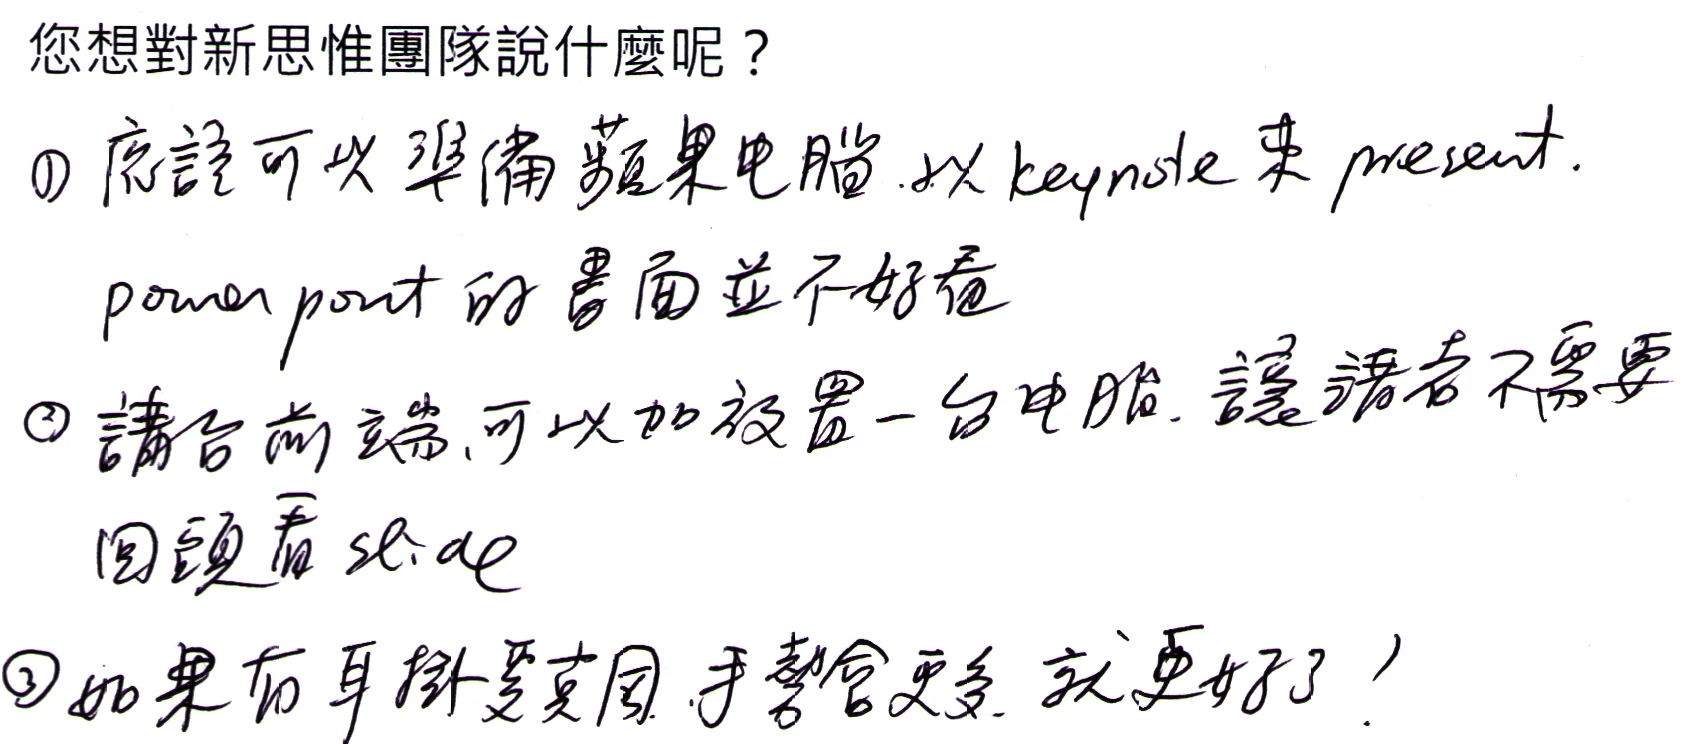 您想對新思惟團隊說什麼呢？
① 應該可以準備蘋果电腦.以keynote來present.
powerpont的畫面並不好看
② 講台前端、可以加放置一台电腦.讓講者不需要
回頭看slide
③ 如果有耳掛麥克風.手勢會更多.就更好了!